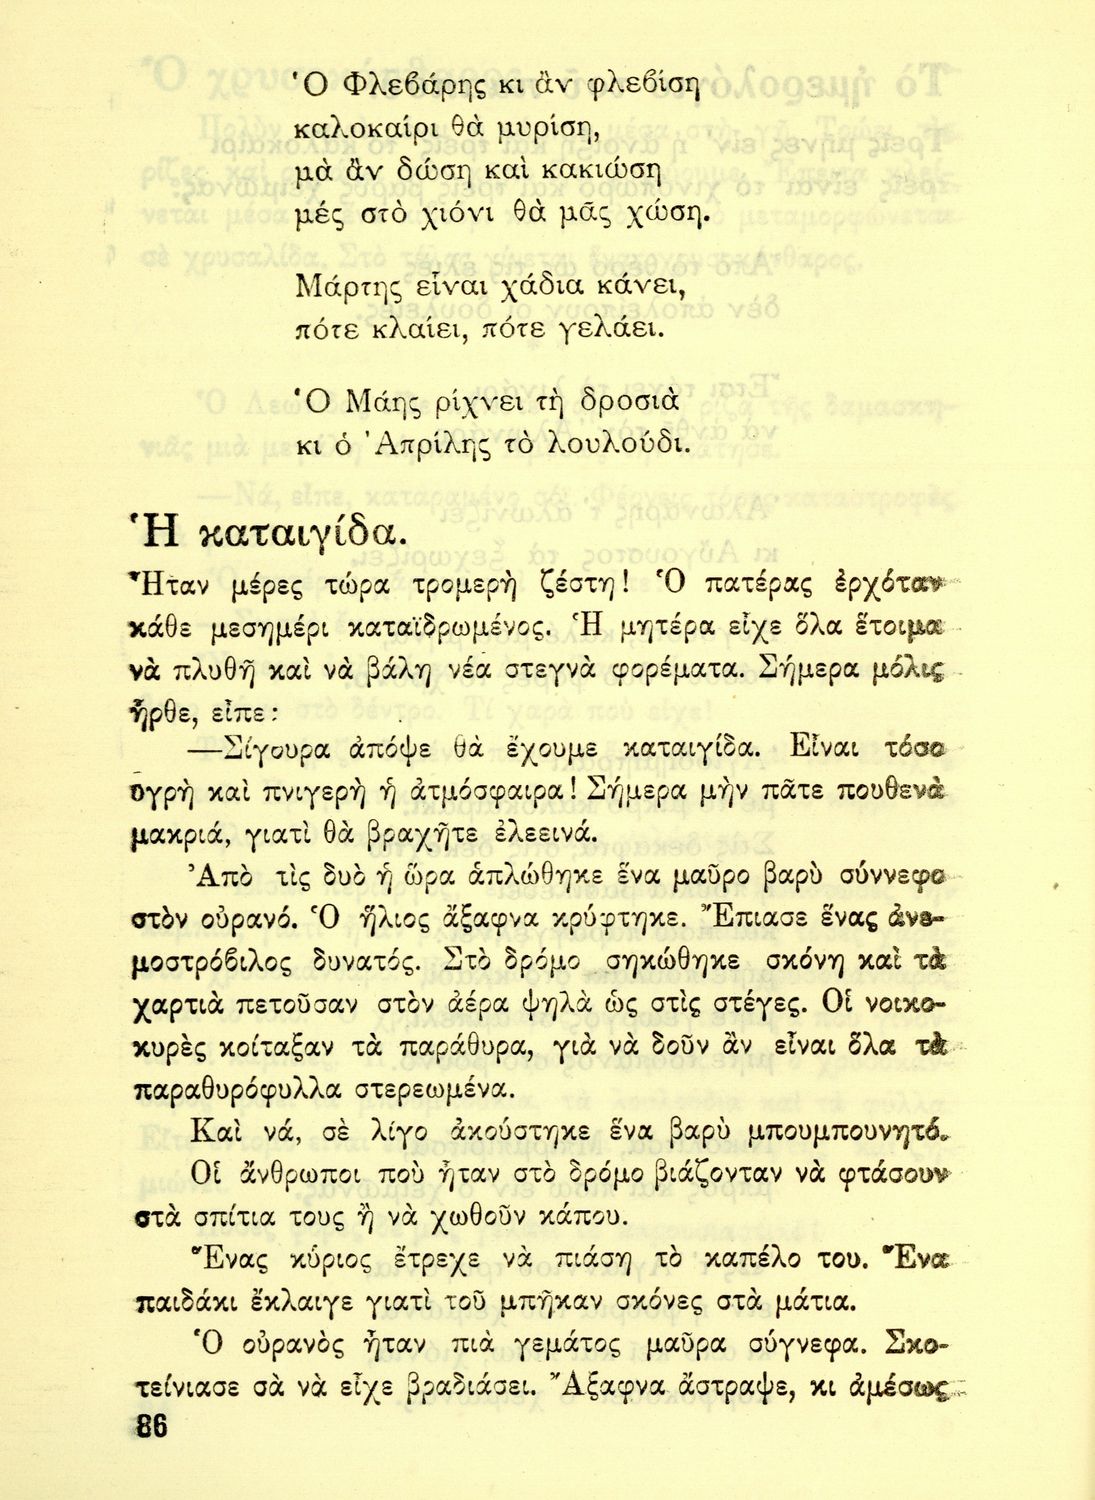 Ὁ Φλεβάρης κι ἂν φλεβίση
καλοκαίρι θὰ μυρίση,
μὰ ἂν δώση καὶ κακιώση
μές στὸ χιόνι θὰ μᾶς χώση.
Μάρτης εἶναι χάδια κάνει,
πότε κλαίει, πότε γελάει.
Ὁ Μάης ρίχνει τὴ δροσιὰ
κι ὁ Ἀπρίλης τὸ λουλούδι.
Ἡ καταιγίδα.
Ἦταν μέρες τώρα τρομερὴ ζέστη! Ὁ πατέρας ἐρχόταν
κάθε μεσημέρι καταϊδρωμένος. Ἡ μητέρα εἶχε ὅλα ἕτοιμα
νὰ πλυθῆ καὶ νὰ βάλη νέα στεγνὰ φορέματα. Σήμερα μόλις
ἦρθε, εἶπε:
—Σίγουρα ἀπόψε θὰ ἔχουμε καταιγίδα. Εἶναι τόσο
ὑγρὴ καὶ πνιγερὴ ἡ ἀτμόσφαιρα! Σήμερα μὴν πᾶτε πουθενὰ
μακριά, γιατὶ θὰ βραχῆτε ἐλεεινά.
Ἀπὸ τὶς δυὸ ἡ ὥρα ἁπλώθηκε ἕνα μαῦρο βαρὺ σύννεφο
στὸν οὐρανό. Ὁ ἥλιος ἄξαφνα κρύφτηκε. Ἔπιασε ἕνας ἀνε-
μοστρόβιλος δυνατός. Στὸ δρόμο σηκώθηκε σκόνη καὶ τὰ
χαρτιὰ πετοῦσαν στὸν ἀέρα ψηλὰ ὡς στὶς στέγες. Οἱ νοικο-
κυρὲς κοίταξαν τὰ παράθυρα, γιὰ νὰ δοῦν ἂν εἶναι ὅλα τὰ
παραθυρόφυλλα στερεωμένα.
Καὶ νά, σὲ λίγο ἀκούστηκε ἕνα βαρὺ μπουμπουνητό.
Οἱ ἄνθρωποι ποὺ ἦταν στὸ δρόμο βιάζονταν νὰ φτάσουν
στὰ σπίτια τους ἢ νὰ χωθοῦν κάπου.
Ἕνας κύριος ἔτρεχε νὰ πιάση τὸ καπέλο του. Ἕνα
παιδάκι ἔκλαιγε γιατὶ τοῦ μπῆκαν σκόνες στὰ μάτια.
Ὁ οὐρανὸς ἦταν πιὰ γεμάτος μαῦρα σύγνεφα. Σκο-
τείνιασε σὰ νὰ εἶχε βραδιάσει. Ἄξαφνα ἄστραψε, κι ἀμέσως
86